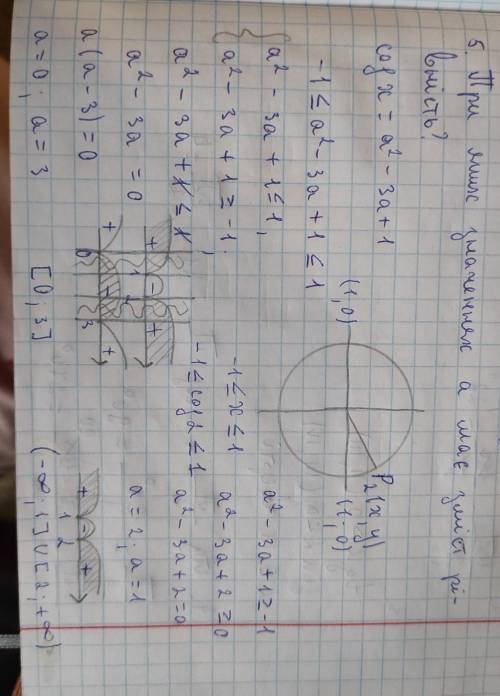 5. При яких значеннях а має зміст рі-
вність?
cos x = a² - 3a + 1
(1, 0)
P₂(x, y)
(1, 0)
-1 ≤ a² - 3a + 1 ≤ 1
a² - 3a + 1 ≤ 1,
a² - 3a + 1 ≥ -1.
a² - 3a + 1 ≤ 1,
a² - 3a = 0
a(a - 3) = 0
a = 0, a = 3
+ - +
1 2
+ - +
0 3
[0; 3]
-1 ≤ x ≤ 1
-1 ≤ cos 2 ≤ 1
a² - 3a + 1 ≥ -1
a² - 3a + 2 ≥ 0
a² - 3a + 2 = 0
a = 2, a = 1
+ - +
1 2
(-∞; 1] ∪ [2; +∞)